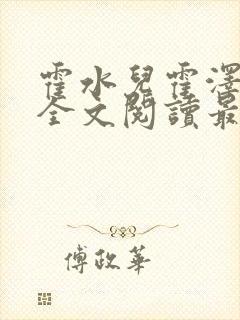 霍水兒霍澤
全文閱讀最
傅政華